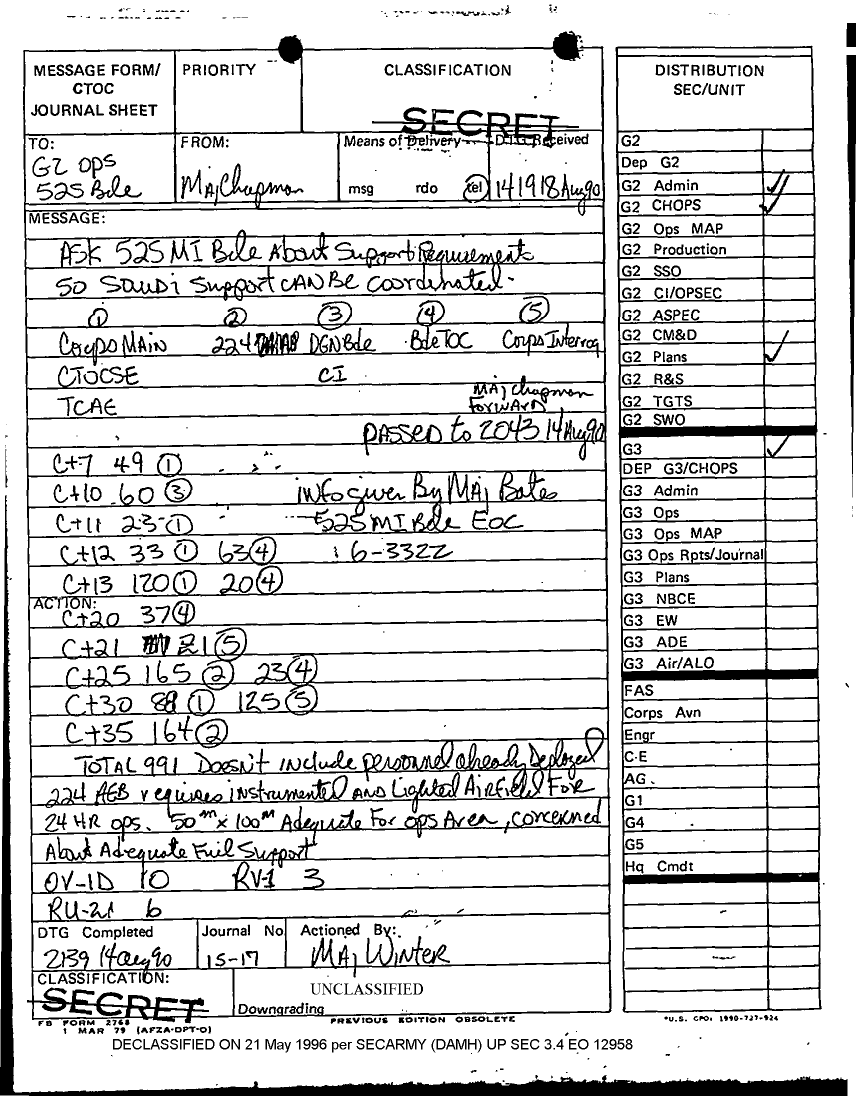 MESSAGE FORM/
CTOC
JOURNAL SHEET
PRIORITY
CLASSIFICATION
SECRET
TO:
G2 OPS
525 Bde
FROM:
MAJ Chapman
Means of Delivery
msg rdo tel
DTG Received
141918 Aug 90
MESSAGE:
ASK 525 MI Bde About Support Requirements
SO SAUDI Support CAN BE Coordinated.
① ② ③ ④ ⑤
Corps MAIN 224 DGN Bde Bde TOC Corps Interrog
CTOCSE CI
TCAE MAJ Chapman
FORWARD
PASSED to 2043 14 Aug 90
C+7 49 ①
C+10 60 ③ INFO given By MAJ Bates
C+11 23 ① 525 MI Bde EOC
C+12 33 ① 63 ④ 6-3322
C+13 120 ① 20 ④
ACTION:
C+20 37 ④
C+21 21 ⑤
C+25 165 ② 23 ④
C+30 88 ① 125 ⑤
C+35 164 ②
TOTAL 991 Doesn't include personnel already Deployed
224 AEB requires instrumented AND Lighted Airfield FOR
24 HR OPS. 50m x 100m Adequate For ops Area, concerned
About Adequate Fuel Support
OV-1D 10 RV-1 3
RU-21 6
DTG Completed
2139 14 Aug 90
Journal No
15-17
Actioned By:
MAJ WINTER
CLASSIFICATION:
SECRET
UNCLASSIFIED
Downgrading
FB FORM 2768
1 MAR 79 (AFZA-DPT-O)
PREVIOUS EDITION OBSOLETE
DISTRIBUTION
SEC/UNIT
G2
Dep G2
G2 Admin
G2 CHOPS
G2 Ops MAP
G2 Production
G2 SSO
G2 CI/OPSEC
G2 ASPEC
G2 CM&D
G2 Plans
G2 R&S
G2 TGTS
G2 SWO
G3
DEP G3/CHOPS
G3 Admin
G3 Ops
G3 Ops MAP
G3 Ops Rpts/Journal
G3 Plans
G3 NBCE
G3 EW
G3 ADE
G3 Air/ALO
FAS
Corps Avn
Engr
C-E
AG
G1
G4
G5
Hq Cmdt
*U.S. CPO: 1990-727-924
DECLASSIFIED ON 21 May 1996 per SECARMY (DAMH) UP SEC 3.4 EO 12958